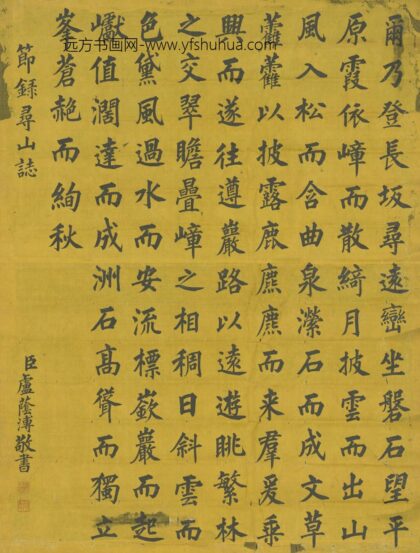 远方书画网-www.yfshuhua.com
爾乃登長坂尋遠巒坐磐石望平
原霞依嶂而散綺月披雲而出山
風入松而含曲泉瀠石而成文草
藿藿以披露鹿麃麃而来羣爰乘
興而遂往遵巖路以遠遊眺繁林
之交翠瞻疊嶂之相稠日斜雲而
色黛風過水而安流標嶔巖而起
巘值濶達而成洲石髙聳而獨立
峯蒼赩而絢秋
節録尋山誌
臣盧蔭溥敬書